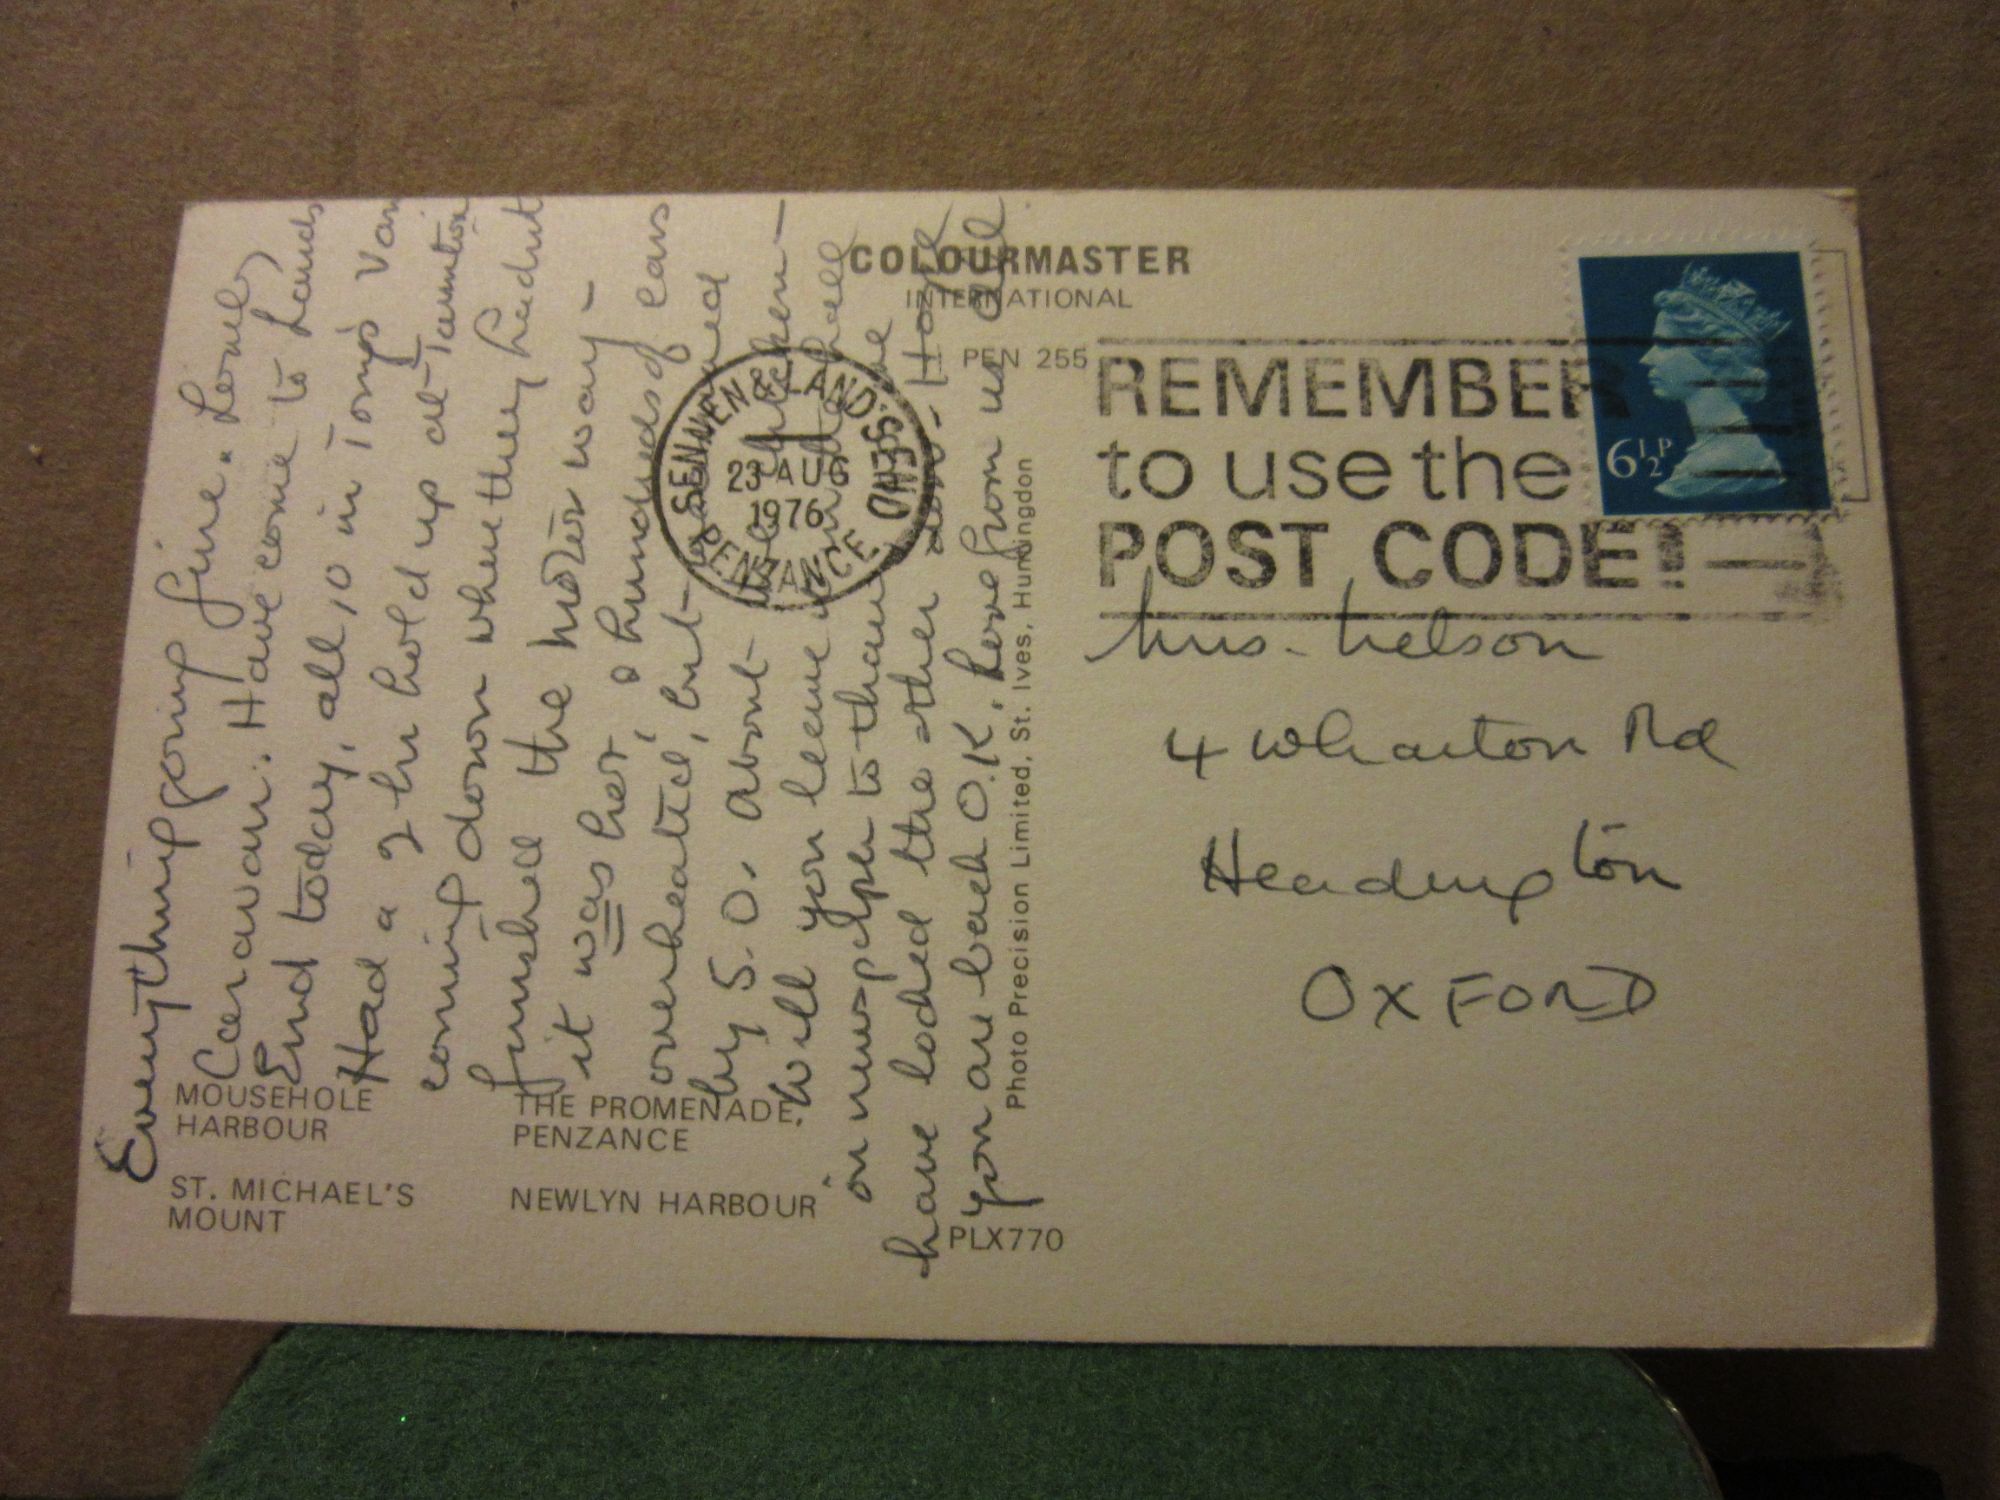 Everything going fine. Lovely
Caravan. Have come to Lands
End today, all 10 in Tonys Van
Had a 2 hr hold up at Taunton
coming down when they hadnt
finshed the motor way -
it was hot, & hundreds of cars
overheated, but
by 5.0. about
Will you leave
on
have locked the other door - Hope
you are back O.K. Love from us all
MOUSEHOLE
HARBOUR
THE PROMENADE,
PENZANCE
ST. MICHAEL'S
MOUNT
NEWLYN HARBOUR
PLX770
Photo Precision Limited, St. Ives, Huntingdon
COLOURMASTER
INTERNATIONAL
PEN 255
SENNEN & LAND'S END
23 AUG
1976
PENZANCE
REMEMBER
to use the
POST CODE!
6½P
Mrs. Nelson
4 Wharton Rd
Headington
OXFORD